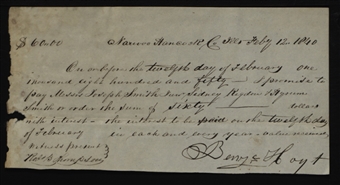 $60.00 Nauvoo Hancock Co Ills Feby 12 1840
On or before the twelfth day of February one
thousand eight hundred and fifty I promise to
pay Messrs Joseph Smith Junr Sidney Rigdon & Hyrum
Smith or order the sum of Sixty dollars
with interest the interest to be paid on the twelfth day
of February in each and every year value received
witness present
Robt B Thompson
Henry Hoyt